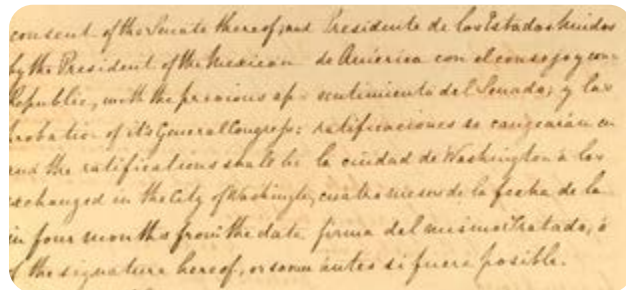 consent of the Senate thereof; and
by the President of the Mexican
Republic, with the previous ap-
probation of it's General Congress:
and the ratifications shall be
exchanged in the City of Washington,
in four months from the date
of the signature hereof, or sooner
Presidente de los Estados Unidos
de América con el consejo y con-
sentimiento del Senado; y las
ratificaciones se cangearán en
la ciudad de Washington à los
cuatro meses de la fecha de la
firma del mismo Tratado, ó
ántes si fuere posible.